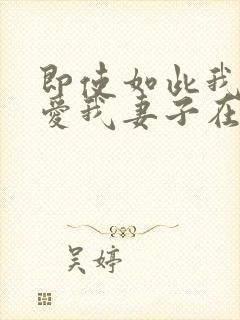 即使如此我
爱我妻子在
吴婷